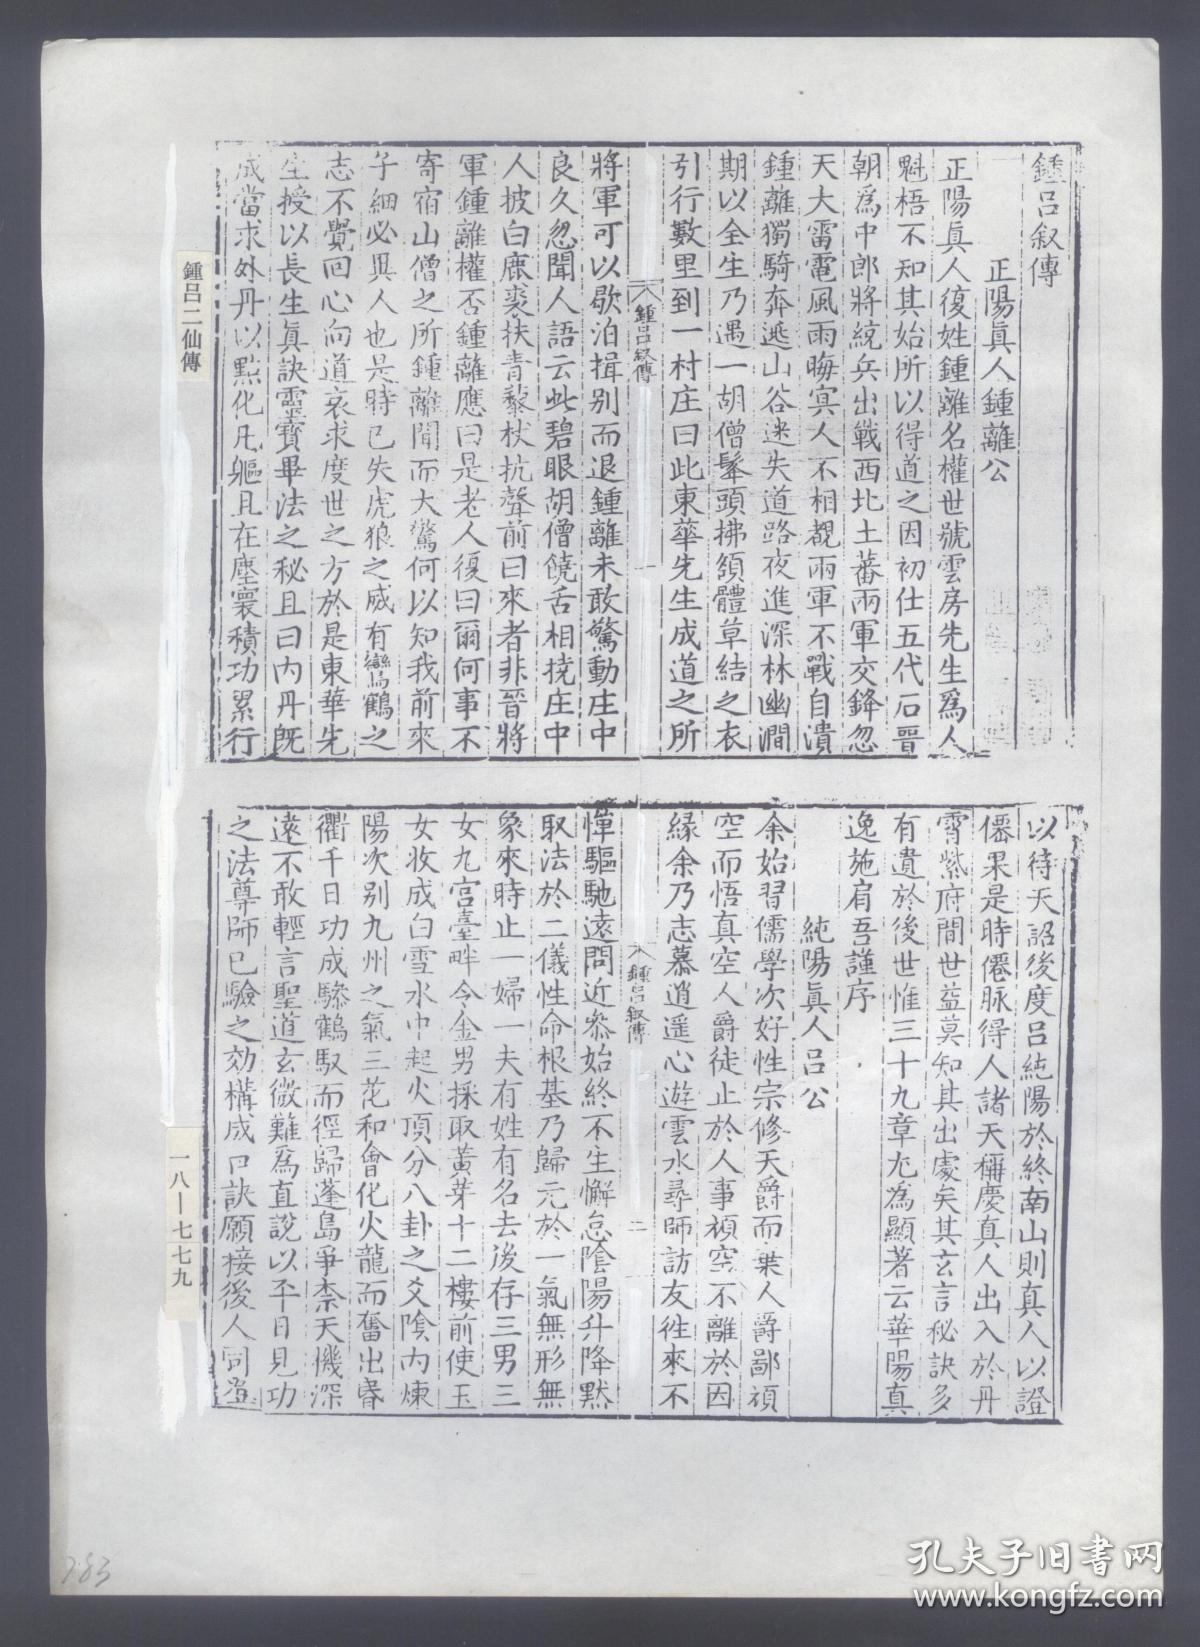 鍾呂叙傳
正陽眞人鍾離公
正陽眞人復姓鍾離名權世號雲房先生爲人
魁梧不知其始所以得道之因初仕五代石晉
朝爲中郎將統兵出戰西北土蕃兩軍交鋒忽
天大雷電風雨晦冥人不相覩兩軍不戰自潰
鍾離獨騎奔逃山谷迷失道路夜進深林幽澗
期以全生乃遇一胡僧髼頭拂額體草結之衣
引行數里到一村庄曰此東華先生成道之所
鍾呂叙傳
一
將軍可以歇泊揖别而退鍾離未敢驚動庄中
良久忽聞人語云此碧眼胡僧饒舌相撓庄中
人披白鹿裘扶青藜杖抗聲前曰來者非晉將
軍鍾離權否鍾離應曰是老人復曰爾何事不
寄宿山僧之所鍾離聞而大驚何以知我前來
子細必異人也是時已失虎狼之威有鸞鶴之
志不覺回心向道哀求度世之方於是東華先
生授以長生眞訣靈寶畢法之秘且曰内丹旣
成當求外丹以點化凡軀且在塵寰積功累行
鍾呂二仙傳
以待天詔後度呂純陽於終南山則真人以證
僊果是時僊脉得人諸天稱慶真人出入於丹
霄紫府間世益莫知其出處矣其玄言秘訣多
有遺於後世惟三十九章尤爲顯著云華陽真
逸施肩吾謹序
純陽眞人呂公
余始習儒學次好性宗修天爵而棄人爵鄙頑
空而悟真空人爵徒止於人事頑空不離於因
緣余乃志慕逍遥心遊雲水尋師訪友徃來不
鍾呂叙傳
二
憚驅馳遠問近叅始終不生懈怠陰陽升降黙
取法於二儀性命根基乃歸元於一氣無形無
象來時止一婦一夫有姓有名去後存三男三
女九宫臺畔令金男採取黄芽十二樓前使玉
女妝成白雪水中起火頂分八卦之爻陰内煉
陽次别九州之氣三花和會化火龍而奮出昏
衢千日功成驂鶴馭而徑歸蓬島爭柰天機深
遠不敢輕言聖道玄微難爲直說以平日見功
之法尊師已驗之効構成口訣願接後人同登
一八—七七九
783
孔夫子旧书网
www.kongfz.com